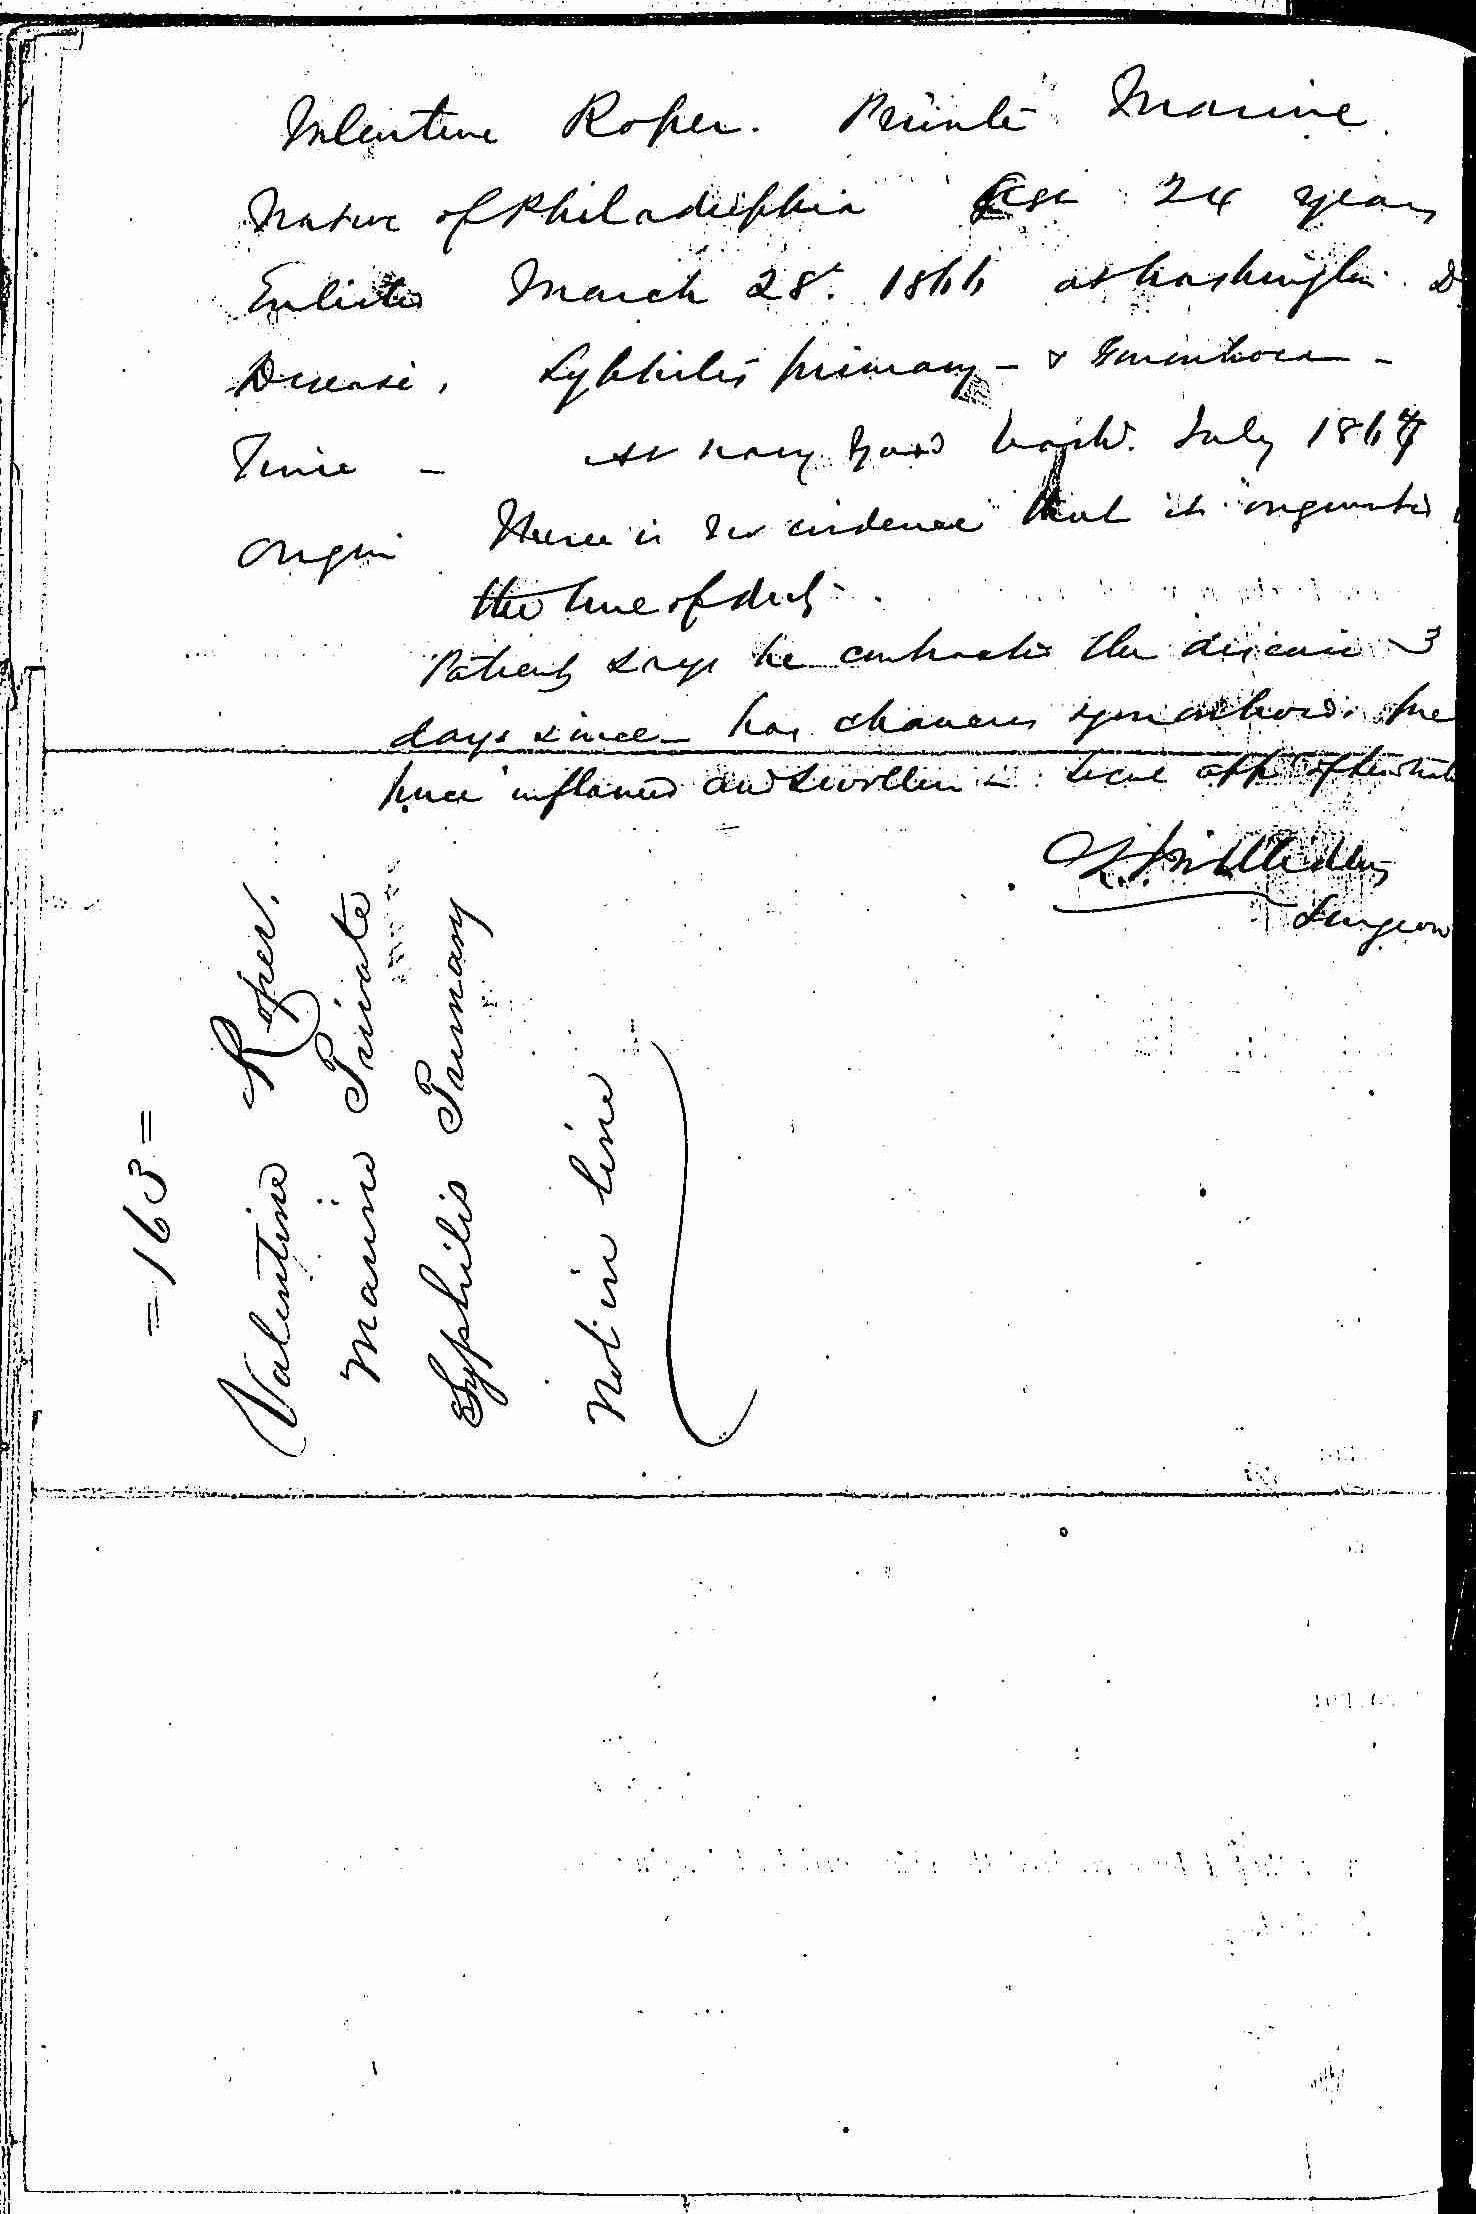 Valentine Roper. Private Marine
Native of Philadelphia Age 24 years
Enlisted March 28t. 1866 at Washington D
Disease, Syphilis primary - & Gonorrhoea -
Time - At Navy Yard Wash. July 1867
Origin There is no evidence that it originated
the line of duty
Patient says he contracted the disease 3
days since - has chancres & gonorrhoea.
inflamed and swollen -
Surgeon
= 163 =
Valentine Roper.
Marine Private
Syphilis Primary
Not in line